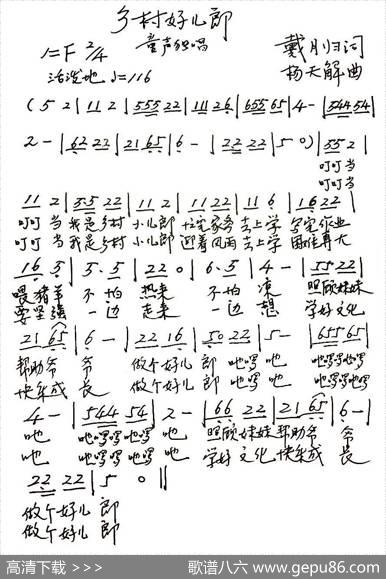 乡村好儿郎
1=F 2/4 童声独唱 戴月归词
活泼地 ♩=116 杨天解曲
(5 2 | 11 2 | 555 22 | 111 26 | 655 65 | 4 - | 544 54 |
2 - | 62 22 | 21 65 | 6 - | 22 22 | 5 0) | 55 2 |
叮叮当
叮叮当
11 2 | 55 22 | 11 2 | 11 22 | 11 6 | 16 22 |
叮叮当 我是乡村 小儿郎 家务 去上学 写完作业
叮叮当 我是乡村 小儿郎 迎着风雨 去上学 困难再大
16 5 | 5·5 | 22 0 | 6·5 | 4 - | 55 22 |
喂猪羊 不怕 热来 不怕 凉 照顾妹妹
要坚强 一边 走来 一边 想 学好文化
21 65 | 6 - | 22 16 | 50 22 | 5 - | 655 65 |
帮助爷 爷 做个好儿 郎 吔啰 吔 吔啰啰吔啰
快成 长 做个好儿 郎 吔啰 吔 吔啰啰吔啰
4 - | 544 54 | 2 - | 66 22 | 21 65 | 6 - |
吔 吔啰啰吔啰 吔 照顾妹妹 帮助爷 爷
吔 吔啰啰吔啰 吔 学好文化 快成 长
22 22 | 5 0 ||
做个好儿 郎
做个好儿 郎
高清下载 >>> 歌谱八六 www.gepu86.com